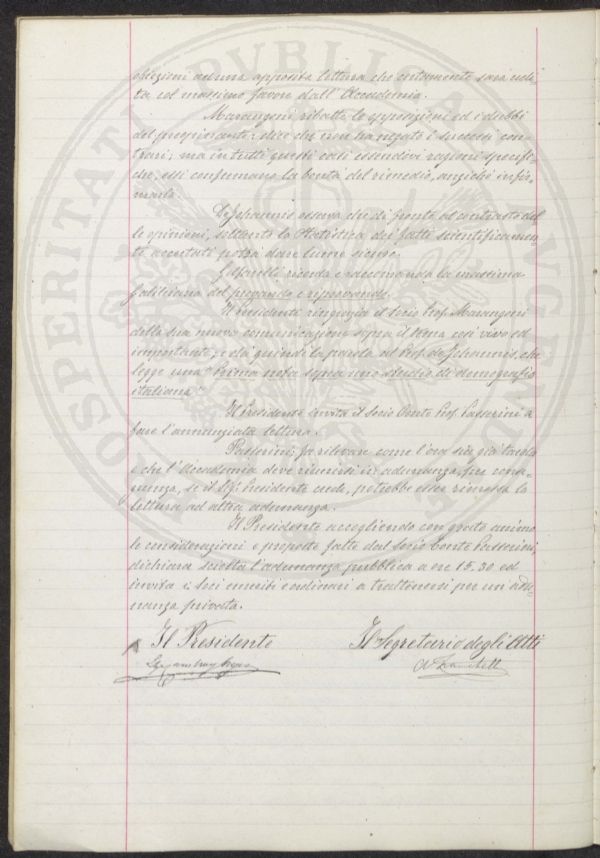 obiezioni ad una apposita lettura che certamente sarà udi-
ta col massimo favore dall'Accademia.
Marangoni ribatte le opposizioni ed i dubbi
del preopinante, dice che non ha negato i successi con-
trari; ma in tutti questi casi essendovi ragioni specifi-
che, essi confermano la bontà del rimedio, anziché infir-
marla.
De Johannis osserva che di fronte al contrasto del-
le opinioni, soltanto la Statistica dei fatti scientificamen-
te accertati potrà dare lume sicuro.
ricorda e raccomanda la massima
galileiana del provando e riprovando.
Il Presidente ringrazia il Socio Prof. Marangoni
della sua nuova comunicazione sopra il tema così vivo ed
importante, e dà quindi la parola al Prof. de Johannis, che
legge una "Prima nota sopra uno studio di demografia
italiana".
Il Presidente invita il Socio Conte Prof. Passerini a
fare l'annunziata lettura.
Passerini, fa rilevare come l'ora sia già tarda
e che l'Accademia deve riunirsi in adunanza, per conse-
guenza, se il Sig. Presidente crede, potrebbe esser rimessa la
lettura ad altra adunanza.
Il Presidente accogliendo con grato animo
le considerazioni e proposte fatte dal Socio Conte Passerini,
dichiara sciolta l'adunanza pubblica a ore 15.30 ed
invita i Soci emeriti e ordinari a trattenersi per un'adu-
nanza privata.
Il Presidente Il Segretario degli Atti
PROSPERITATI PVBLICAE AVGENDAE